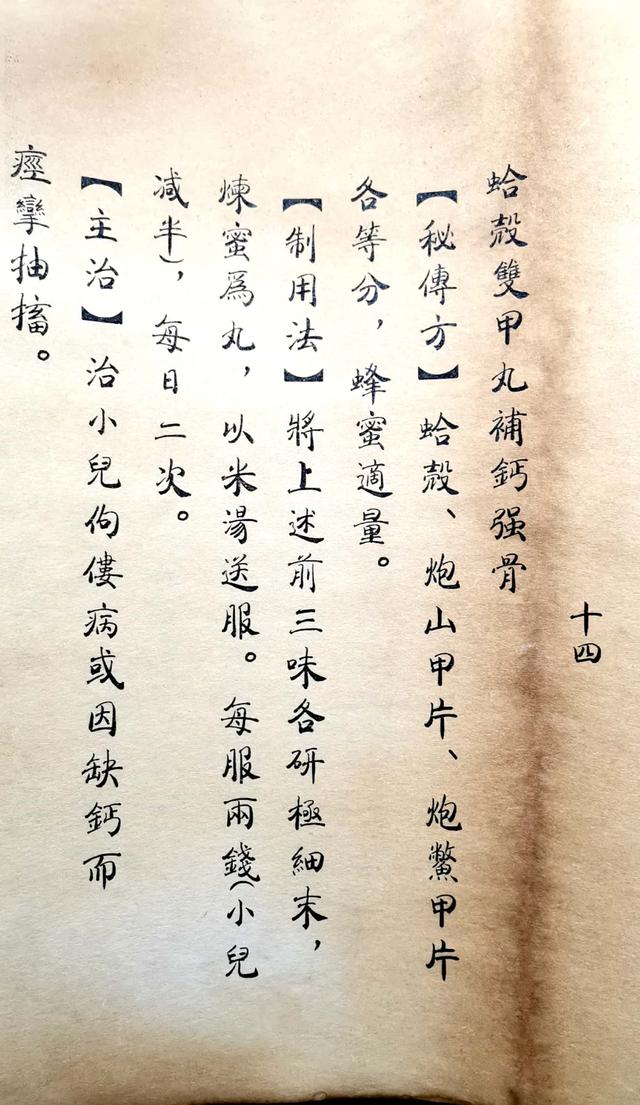 十四
蛤殼雙甲丸補鈣强骨
【秘傳方】蛤殼、炮山甲片、炮鱉甲片
各等分，蜂蜜適量。
【制用法】將上述前三味各研極細末，
煉蜜爲丸，以米湯送服。每服兩錢（小兒
减半），每日二次。
【主治】治小兒佝僂病或因缺鈣而
痙攣抽搐。